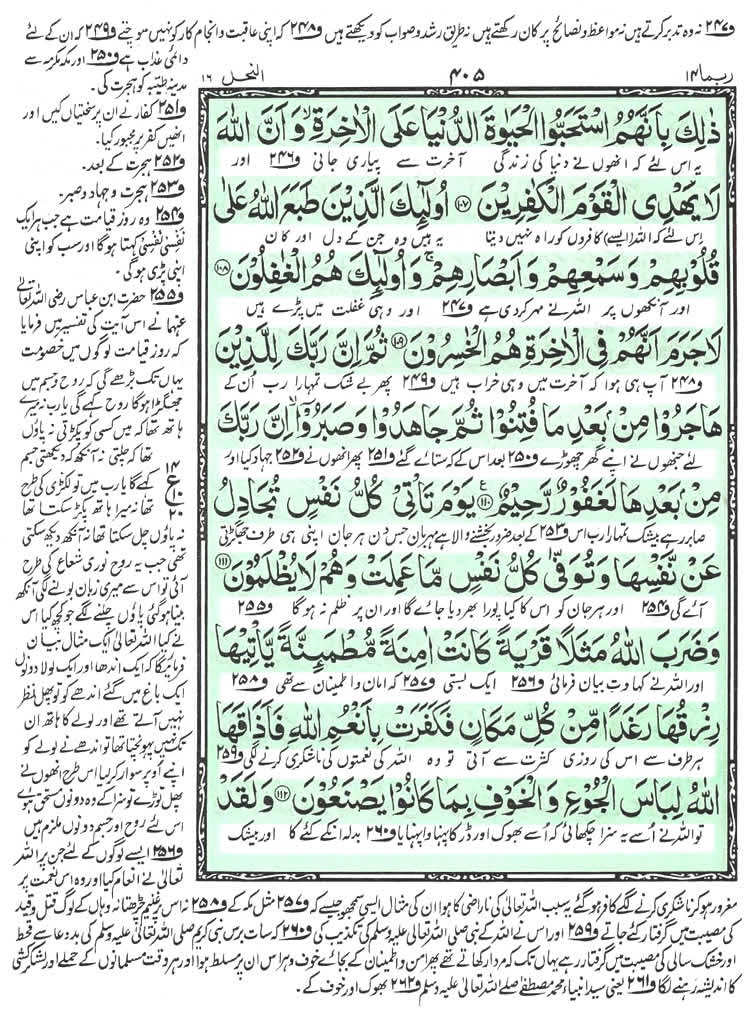 و۲۴۷ نہ وہ تدبر کرتے ہیں نہ مواعظ و نصائح پر کان رکھتے ہیں نہ طریق رشد و صواب کو دیکھتے ہیں و۲۴۸ کہ اپنی عاقبت و انجام کار کو نہیں سوچتے و۲۴۹ کہ ان کے لئے
ربما ۱۴
۴۰۵
النحل ۱۶
ذٰلِكَ بِاَنَّهُمُ اسْتَحَبُّوا الْحَیٰوةَ الدُّنْیَا عَلَى الْاٰخِرَةِۙ وَ اَنَّ اللّٰهَ
یہ اس لئے کہ انھوں نے دنیا کی زندگی آخرت سے پیاری جانی و۲۴۶ اور
لَا یَهْدِی الْقَوْمَ الْكٰفِرِیْنَ ۱۰۷ اُولٰٓىٕكَ الَّذِیْنَ طَبَعَ اللّٰهُ عَلٰى
اس لئے کہ اللہ (ایسے) کافروں کو راہ نہیں دیتا یہ ہیں وہ جن کے دل اور کان
قُلُوْبِهِمْ وَ سَمْعِهِمْ وَ اَبْصَارِهِمْۚ وَ اُولٰٓىٕكَ هُمُ الْغٰفِلُوْنَ ۱۰۸
اور آنکھوں پر اللہ نے مہر کر دی ہے و۲۴۷ اور وہی غفلت میں پڑے ہیں
لَا جَرَمَ اَنَّهُمْ فِی الْاٰخِرَةِ هُمُ الْخٰسِرُوْنَ ۱۰۹ ثُمَّ اِنَّ رَبَّكَ لِلَّذِیْنَ
و۲۴۸ آپ ہی ہوا کہ آخرت میں وہی خراب ہیں و۲۴۹ پھر بے شک تمہارا رب ان کے
هَاجَرُوْا مِنْۢ بَعْدِ مَا فُتِنُوْا ثُمَّ جٰهَدُوْا وَ صَبَرُوْۤاۙ اِنَّ رَبَّكَ
لئے جنھوں نے اپنے گھر چھوڑے و۲۵۰ بعد اس کے کہ ستائے گئے و۲۵۱ پھر انھوں نے و۲۵۲ جہاد کیا اور
مِنْۢ بَعْدِهَا لَغَفُوْرٌ رَّحِیْمٌ ۱۱۰ یَوْمَ تَاْتِیْ كُلُّ نَفْسٍ تُجَادِلُ
صابر رہے بیشک تمہارا رب اس و۲۵۳ کے بعد ضرور بخشنے والا ہے مہربان جس دن ہر جان اپنی ہی طرف جھگڑتی
عَنْ نَّفْسِهَا وَ تُوَفّٰى كُلُّ نَفْسٍ مَّا عَمِلَتْ وَ هُمْ لَا یُظْلَمُوْنَ ۱۱۱
آئے گی و۲۵۴ اور ہر جان کو اس کا کیا پورا بھر دیا جائے گا اور ان پر ظلم نہ ہوگا و۲۵۵
وَ ضَرَبَ اللّٰهُ مَثَلًا قَرْیَةً كَانَتْ اٰمِنَةً مُّطْمَىٕنَّةً یَّاْتِیْهَا
اور اللہ نے کہاوت بیان فرمائی و۲۵۶ ایک بستی و۲۵۷ کہ امان و اطمینان سے تھی و۲۵۸
رِزْقُهَا رَغَدًا مِّنْ كُلِّ مَكَانٍ فَكَفَرَتْ بِاَنْعُمِ اللّٰهِ فَاَذَاقَهَا
ہر طرف سے اس کی روزی کثرت سے آتی تو وہ اللہ کی نعمتوں کی ناشکری کرنے لگی و۲۵۹
اللّٰهُ لِبَاسَ الْجُوْعِ وَ الْخَوْفِ بِمَا كَانُوْا یَصْنَعُوْنَ ۱۱۲ وَ لَقَدْ
تو اللہ نے اسے یہ سزا چکھائی کہ اسے بھوک اور ڈر کا پہناوا پہنایا و۲۶۰ بدلہ ان کے کئے کا اور بیشک
دائمی عذاب ہے و۲۵۰ اور مکہ مکرمہ سے
مدینہ طیبہ کو ہجرت کی۔
و۲۵۱ کفار نے ان پر سختیاں کیں اور
انھیں کفر پر مجبور کیا۔
و۲۵۲ ہجرت کے بعد۔
و۲۵۳ ہجرت و جہاد و صبر۔
و۲۵۴ وہ روز قیامت ہے جب ہر ایک
نفسی نفسی کہتا ہوگا اور سب کو اپنی
اپنی پڑی ہوگی۔
و۲۵۵ حضرت ابن عباس رضی اللہ تعالیٰ
عنہما نے اس آیت کی تفسیر میں فرمایا
کہ روز قیامت لوگوں میں خصومت
یہاں تک بڑھے گی کہ روح و جسم میں
جھگڑا ہوگا روح کہے گی یا رب نہ میرے
ہاتھ تھا کہ میں کسی کو پکڑتی نہ پاؤں
تھا کہ چلتی نہ آنکھ کہ دیکھتی جسم
کہے گا یا رب میں تو لکڑی کی طرح
تھا نہ میرا ہاتھ پکڑ سکتا تھا
نہ پاؤں چل سکتا تھا نہ آنکھ دیکھ سکتی
تھی جب یہ روح نوری شعاع کی طرح
آئی تو اس سے میری زبان بولنے لگی آنکھ
بینا ہوگئی پاؤں چلنے لگے جو کچھ کیا اس
نے کیا اللہ تعالیٰ ایک مثال بیان
فرمائیگا کہ ایک اندھا اور ایک لولا دونوں
ایک باغ میں گئے اندھے کو تو پھل نظر
نہیں آتے تھے اور لولے کا ہاتھ ان
تک نہیں پہونچتا تھا تو اندھے نے لولے کو
اپنے اوپر سوار کر لیا اس طرح انھوں نے
پھل توڑے تو سزا کے وہ دونوں مستحق ہوئے
اس لئے روح اور جسم دونوں ملزم ہیں
و۲۵۶ ایسے لوگوں کے لئے جن پر اللہ
تعالیٰ نے انعام کیا اور وہ اس نعمت پر
۱۴
ع
۱۰
۲۰
مغرور ہو کر ناشکری کرنے لگے کافر ہوگئے یہ سبب اللہ تعالیٰ کی ناراضی کا ہوا ان کی مثال ایسی سمجھو جیسے کہ و۲۵۷ مثل مکہ کے و۲۵۸ نہ اس پر غنیم چڑھتا نہ وہاں کے لوگ قتل و قید
کی مصیبت میں گرفتار کئے جاتے و۲۵۹ اور اس نے اللہ کے نبی صلی اللہ تعالیٰ علیہ وسلم کی تکذیب کی و۲۶۰ کہ سات برس نبی کریم صلی اللہ تعالیٰ علیہ وسلم کی بددعا سے قحط
اور خشک سالی کی مصیبت میں گرفتار رہے یہاں تک کہ مردار کھاتے تھے پھر امن و اطمینان کے بجائے خوف و ہراس ان پر مسلط ہوا اور ہر وقت مسلمانوں کے حملے اور لشکر کشی
کا اندیشہ رہنے لگا و۲۶۱ یعنی سید انبیاء محمد مصطفےٰ صلے اللہ تعالیٰ علیہ وسلم و۲۶۲ بھوک اور خوف کے۔